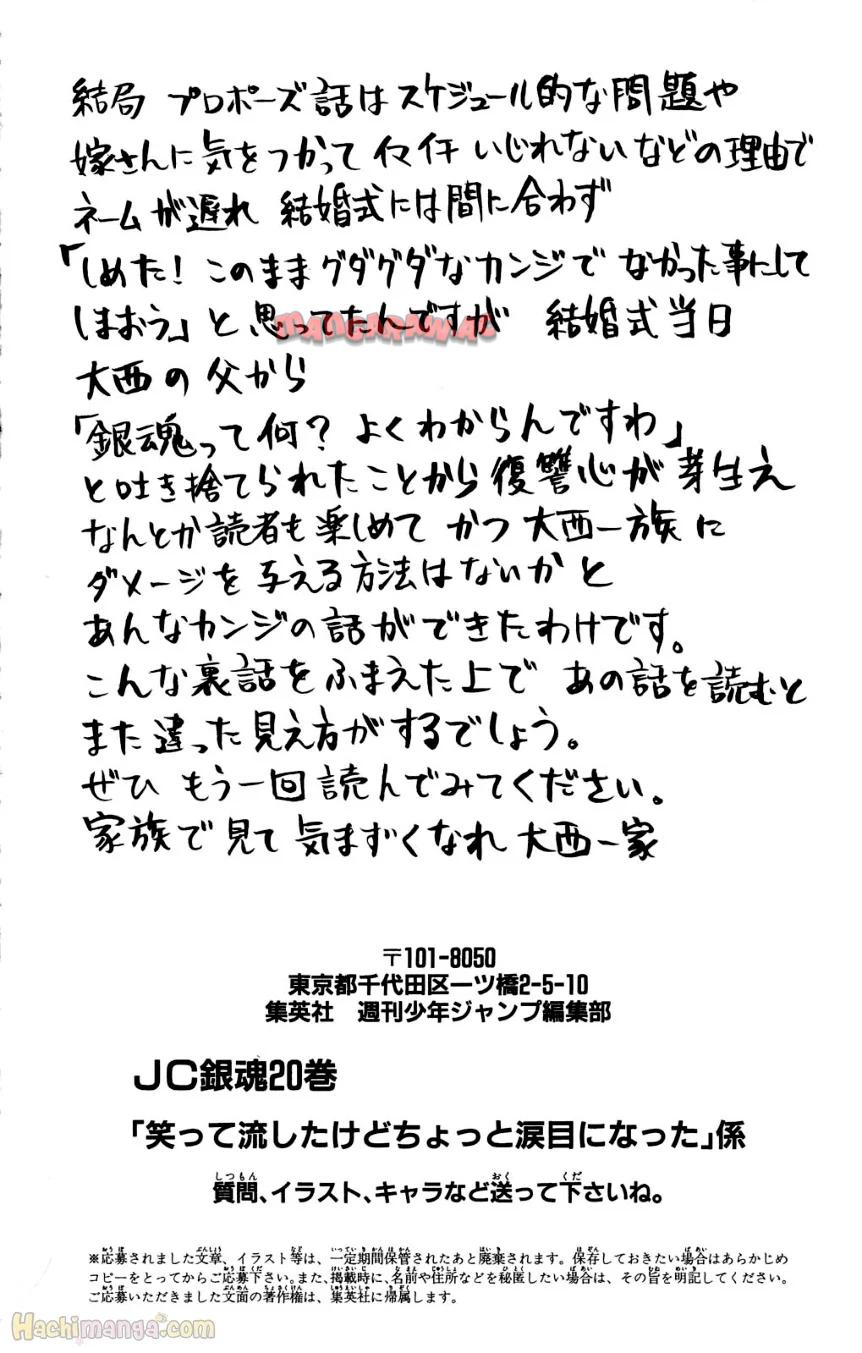 結局 プロポーズ話はスケジュール的な問題や
嫁さんに気をつかって イマイチ いじれないなどの理由で
ネームが遅れ 結婚式には間に合わず
「しめた！このままグダグダなカンジで なかった事にして
しまおう」と思ってたんですが 結婚式当日
MANGARAWAC
大西の父から
「銀魂って何？よくわからんですわ」
と吐き捨てられたことから復讐心が芽生え
なんとか読者も楽しめて かつ大西一族に
ダメージを与える方法はないかと
あんなカンジの話ができたわけです。
こんな裏話をふまえた上で あの話を読むと
また違った見え方がするでしょう。
ぜひ もう一回読んでみてください。
家族で見て 気まずくなれ 大西一家
〒101-8050
東京都千代田区一ツ橋2-5-10
集英社 週刊少年ジャンプ編集部
JC銀魂20巻
「笑って流したけどちょっと涙目になった」係
質問、イラスト、キャラなど送って下さいね。
※応募されました文章、イラスト等は、一定期間保管されたあと廃棄されます。保存しておきたい場合はあらかじめ
コピーをとってからご応募下さい。また、掲載時に、名前や住所などを秘匿したい場合は、その旨を明記してください。
ご応募いただきました文面の著作権は、集英社に帰属します。
Hachimanga.com